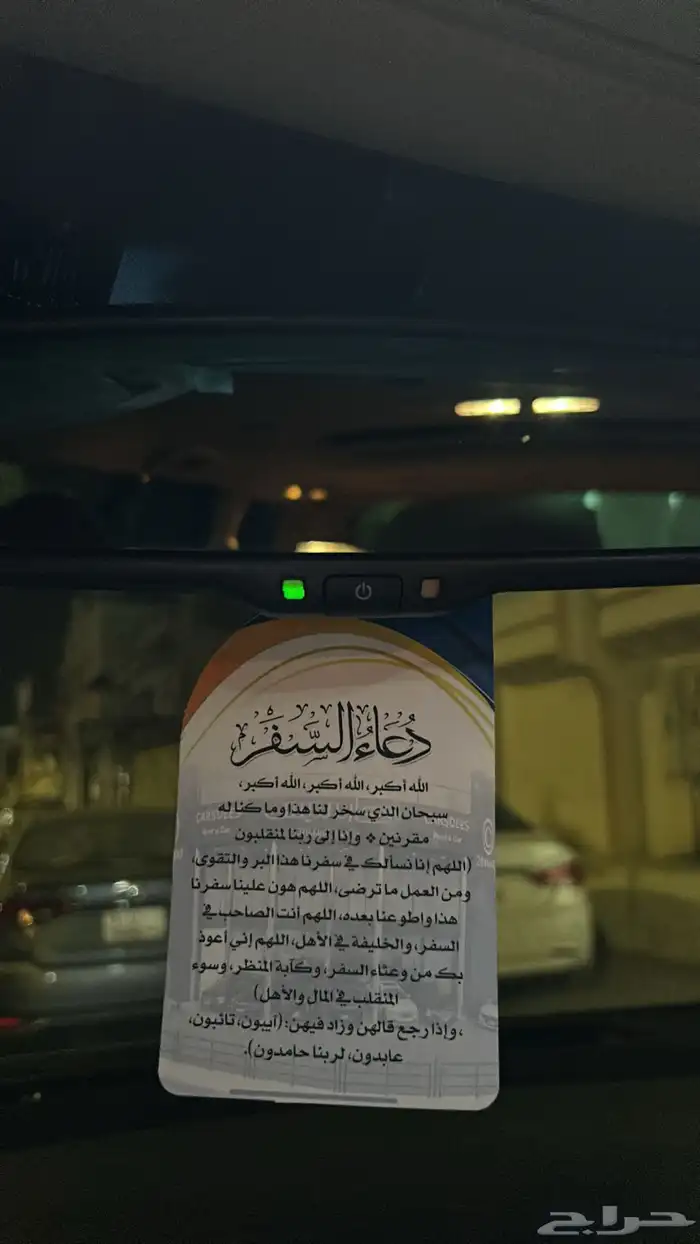 دُعَاءُ السَّفَر
الله أكبر، الله أكبر، الله أكبر،
سبحان الذي سخر لنا هذا وما كنا له
مقرنين * وإنا إلى ربنا لمنقلبون
(اللهم إنا نسألك في سفرنا هذا البر والتقوى،
ومن العمل ما ترضى، اللهم هون علينا سفرنا
هذا واطو عنا بعده، اللهم أنت الصاحب في
السفر، والخليفة في الأهل، اللهم إني أعوذ
بك من وعثاء السفر، وكآبة المنظر، وسوء
المنقلب في المال والأهل)
، وإذا رجع قالهن وزاد فيهن: (آيبون، تائبون،
عابدون، لربنا حامدون).
حراج